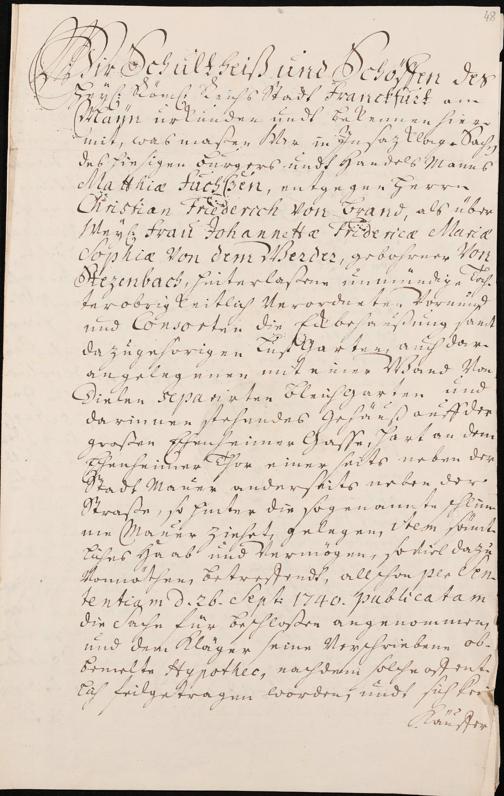 48
Wir Schultheiß und Schöffen des
Heyl: Röm: Reichs Stadt Franckfurt am
Mayn urkunden undt bekennen hier-
mit, was maßen Wir in Insaz Klag-Sach
des hiesigen Burgers undt Handels Manns
Matthiæ Fuchßen, entgegen Herrn
Christian Friederich von Brand, als über
Weyl: Frau Johannettæ Fridericæ Mariæ
Sophiæ Von dem Werder, gebohrner Von
Stezenbach, hinterlaßene unmündige Toch-
ter obrigkeitlich Verordneten Vormund
und Consorten die Eckbehaußung samt
dazugehörigen Lust Garten, auch dar-
angelegenen mit einer Wand Von
Dielen separirten Bleichgarten und
darinnen stehendes Gehäuß auff der
großen Eschenheimer Gasse, hart an dem
Eschenheimer Thor einerseits neben der
Stadt Mauer anderseits neben der
Straße, so hinter die sogenannte schlim-
me Mauer ziehet, gelegen, item sämt-
liches Haab und Vermögen, soviel dazu
Vonnöthen, betreffendt, allschon per Sen-
tentiam d. 26. Sept: 1740. publicatam
die Sache für beschloßen angenommen,
und dem Kläger seine Verschriebene ob-
bemelte Hypothec, nachdem solche offent-
lich feilgetragen worden, undt sich kein
Käuffer